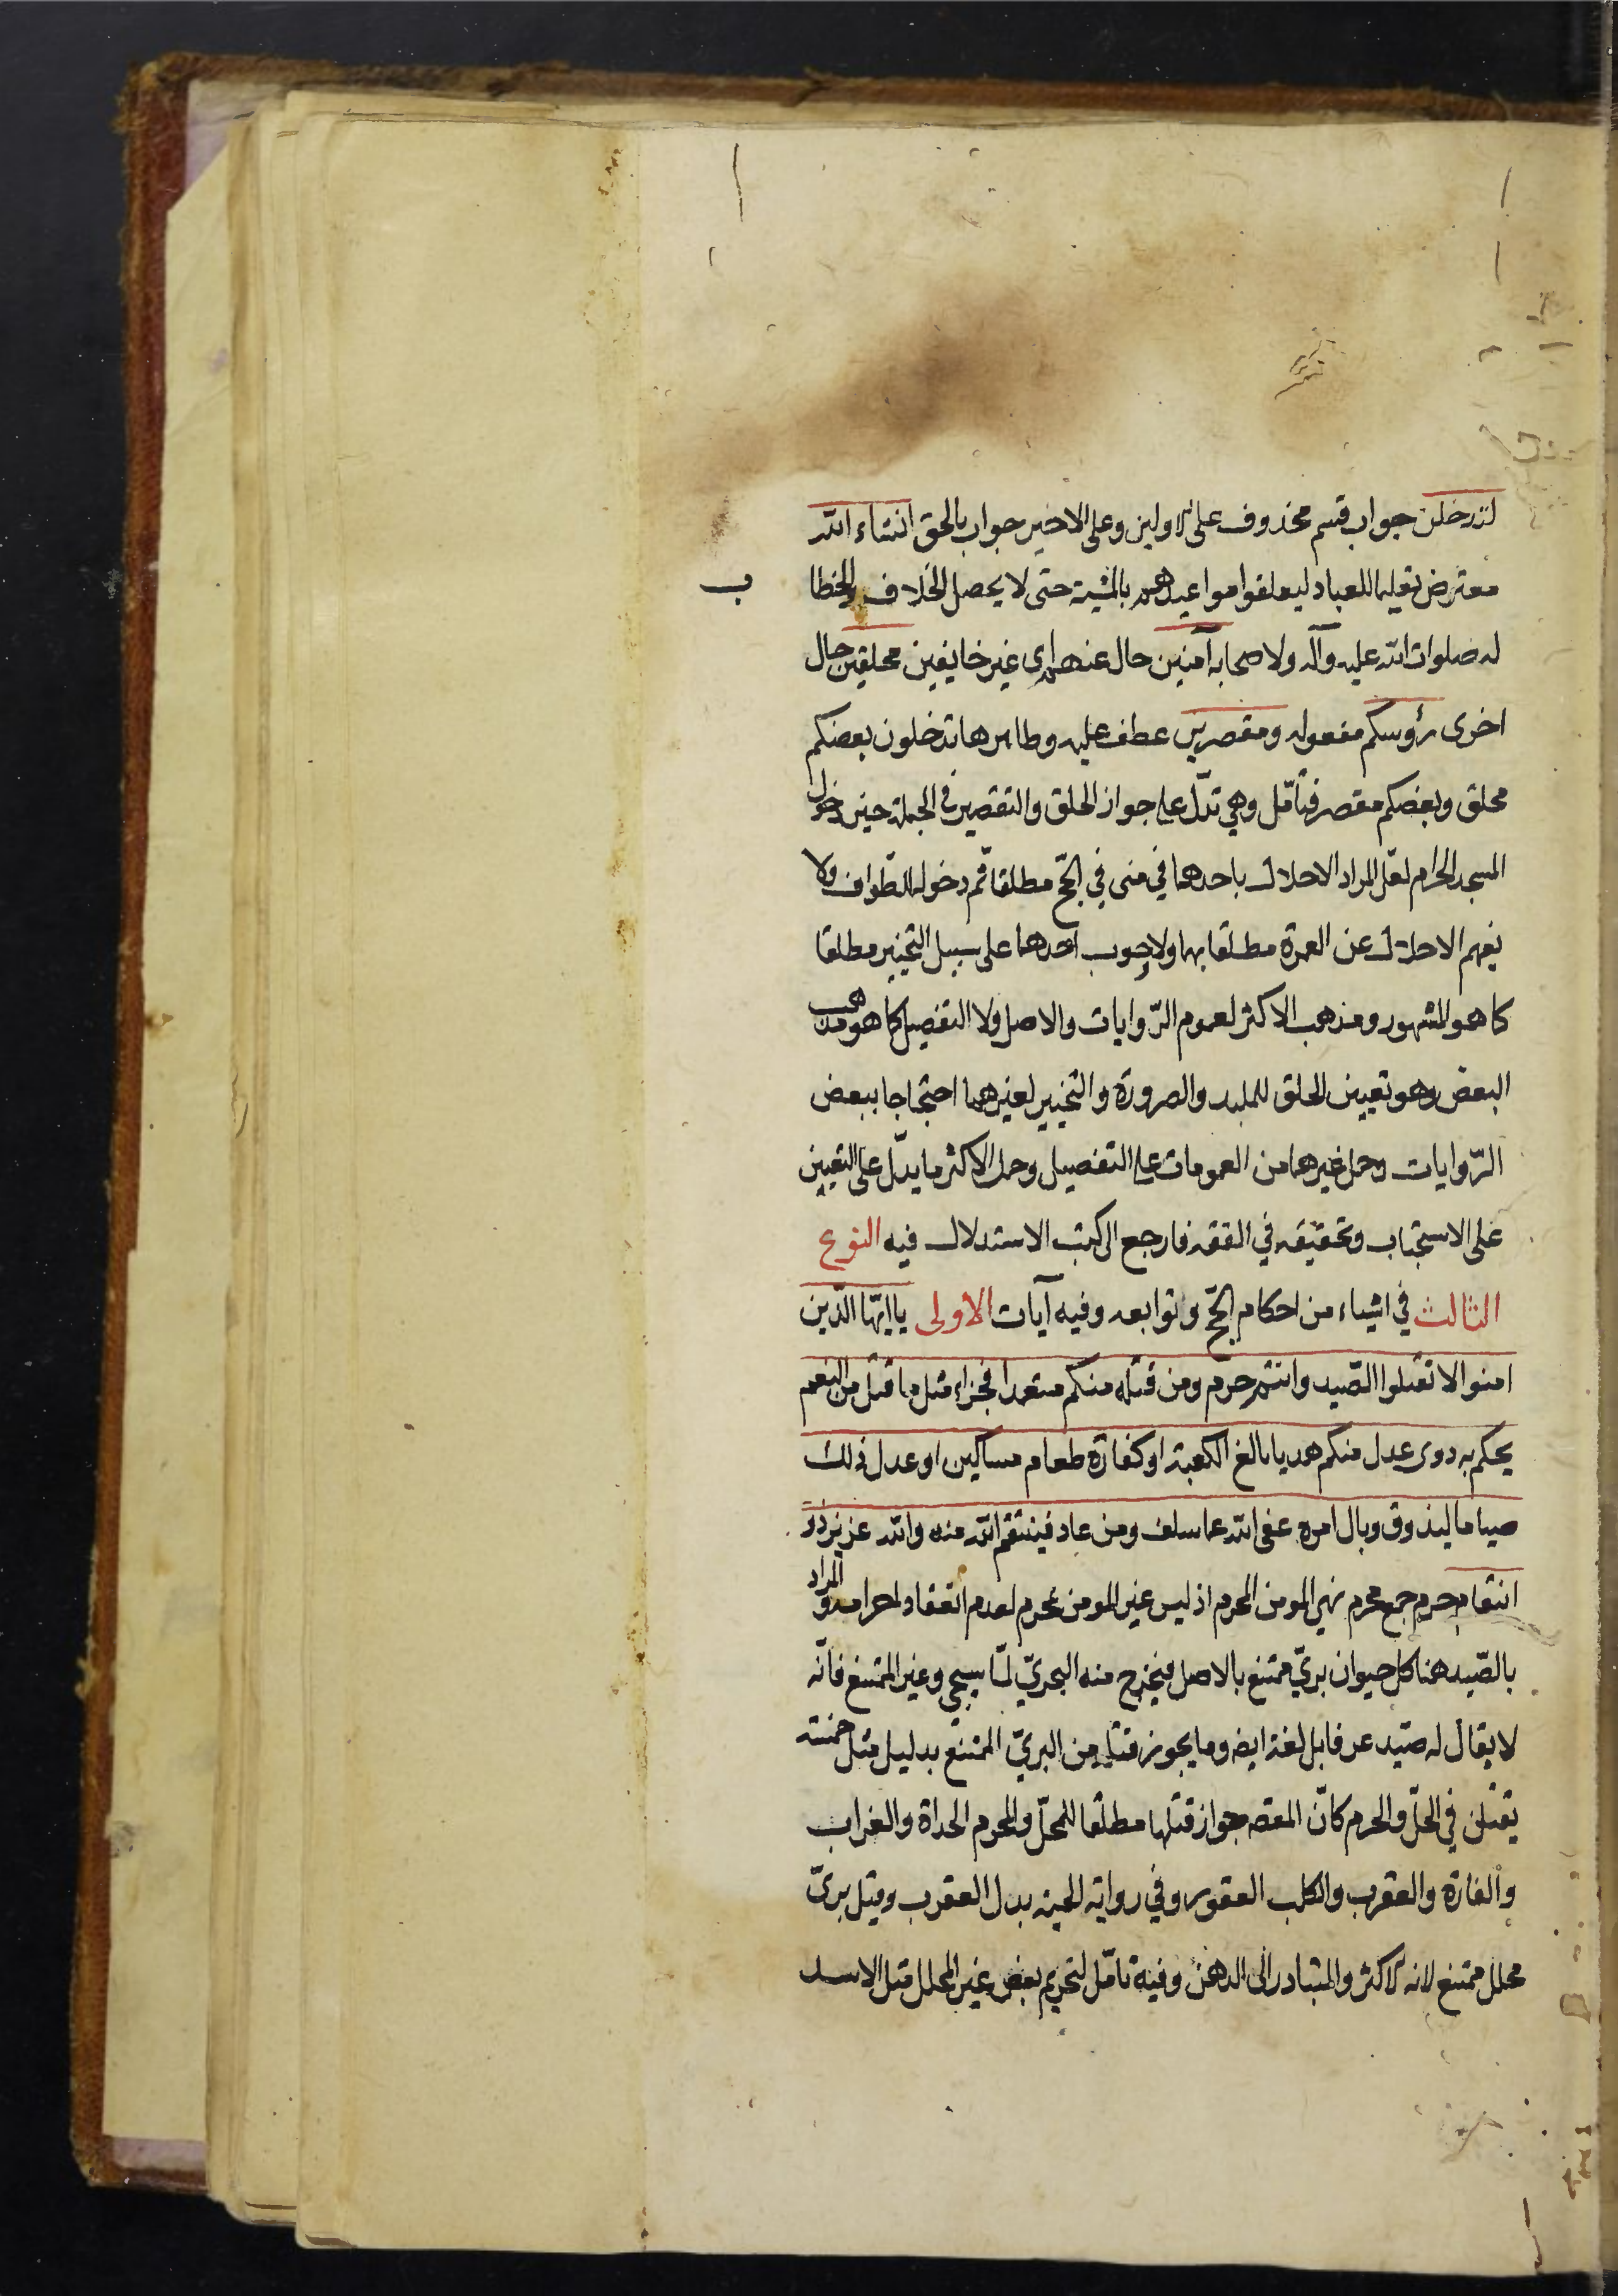 لتدخلن جواب قسم محذوف على الاولين وعلى الاخير جواب بالحق انشاء الله
معترض تعليما للعباد ليعلقوا مواعيدهم بالمشية حتى لا يحصل الخلاف والخطا
ب
له صلوات الله عليه وآله ولاصحابه آمنين حال عنهم اى غير خايفين محلقين حال
اخرى رؤسكم مفعوله ومقصرين عطف عليه وظاهرها تدخلون بعضكم
محلق وبعضكم مقصر فتأمّل وهي تدلّ على جواز الحلق والتقصير في الجملة حين دخول
المسجد الحرام لعلّ المراد الاحلال باحدهما في منى في الحجّ مطلقا ثم دخوله للطّواف ولا
يفهم الاحلال عن العمرة مطلقا بهما ولا وجوب احدهما على سبيل التخيير مطلقا
كما هو المشهور ومذهب الاكثر لعموم الرّوايات والاصل ولا التفصيل كما هو مذهب
البعض وهو تعيين الحلق للملبد والصرورة والتخيير لغيرهما احتجاجا ببعض
الرّوايات وحمل غيرهما من العمومات على التفصيل وحمل الاكثر ما يدلّ على التعيين
على الاستحباب وتحقيقه في الفقه فارجع الى كتب الاستدلال فيه النوع
الثالث في اشياء من احكام الحجّ وتوابعه وفيه آيات الاولى يا ايّها الّذين
امنوا لا تقتلوا الصّيد وانتم حرم ومن قتله منكم متعمدا فجزاء مثل ما قتل من النعم
يحكم به ذوى عدل منكم هديا بالغ الكعبة او كفارة طعام مساكين او عدل ذلك
صياما ليذوق وبال امره عفى الله عما سلف ومن عاد فينتقم الله منه والله عزيز ذو
انتقام حرم جمع محرم نهى المومن المحرم اذ ليس غير المومن بمحرم لعدم انعقاد احرامه والمراد
بالصّيد هنا كل حيوان بريّ ممتنع بالاصل فيخرج منه البحريّ لمّا سيجي وغير الممتنع فانّه
لا يقال له صيد عرفا بل لغة ايضا وما يجوز قتله من البريّ الممتنع بدليل مثل خمسة
يقتلن في الحلّ والحرم كانّ المقصد جواز قتلها مطلقا للمحلّ والمحرم الحداة والغراب
والفارة والعقرب والكلب العقور وفي رواية الحية بدل العقرب وقيل بريّ
محلل ممتنع لانه الاكثر والمتبادر الى الذهن وفيه تامّل لتحريم بعض غير المحلل مثل الاسد